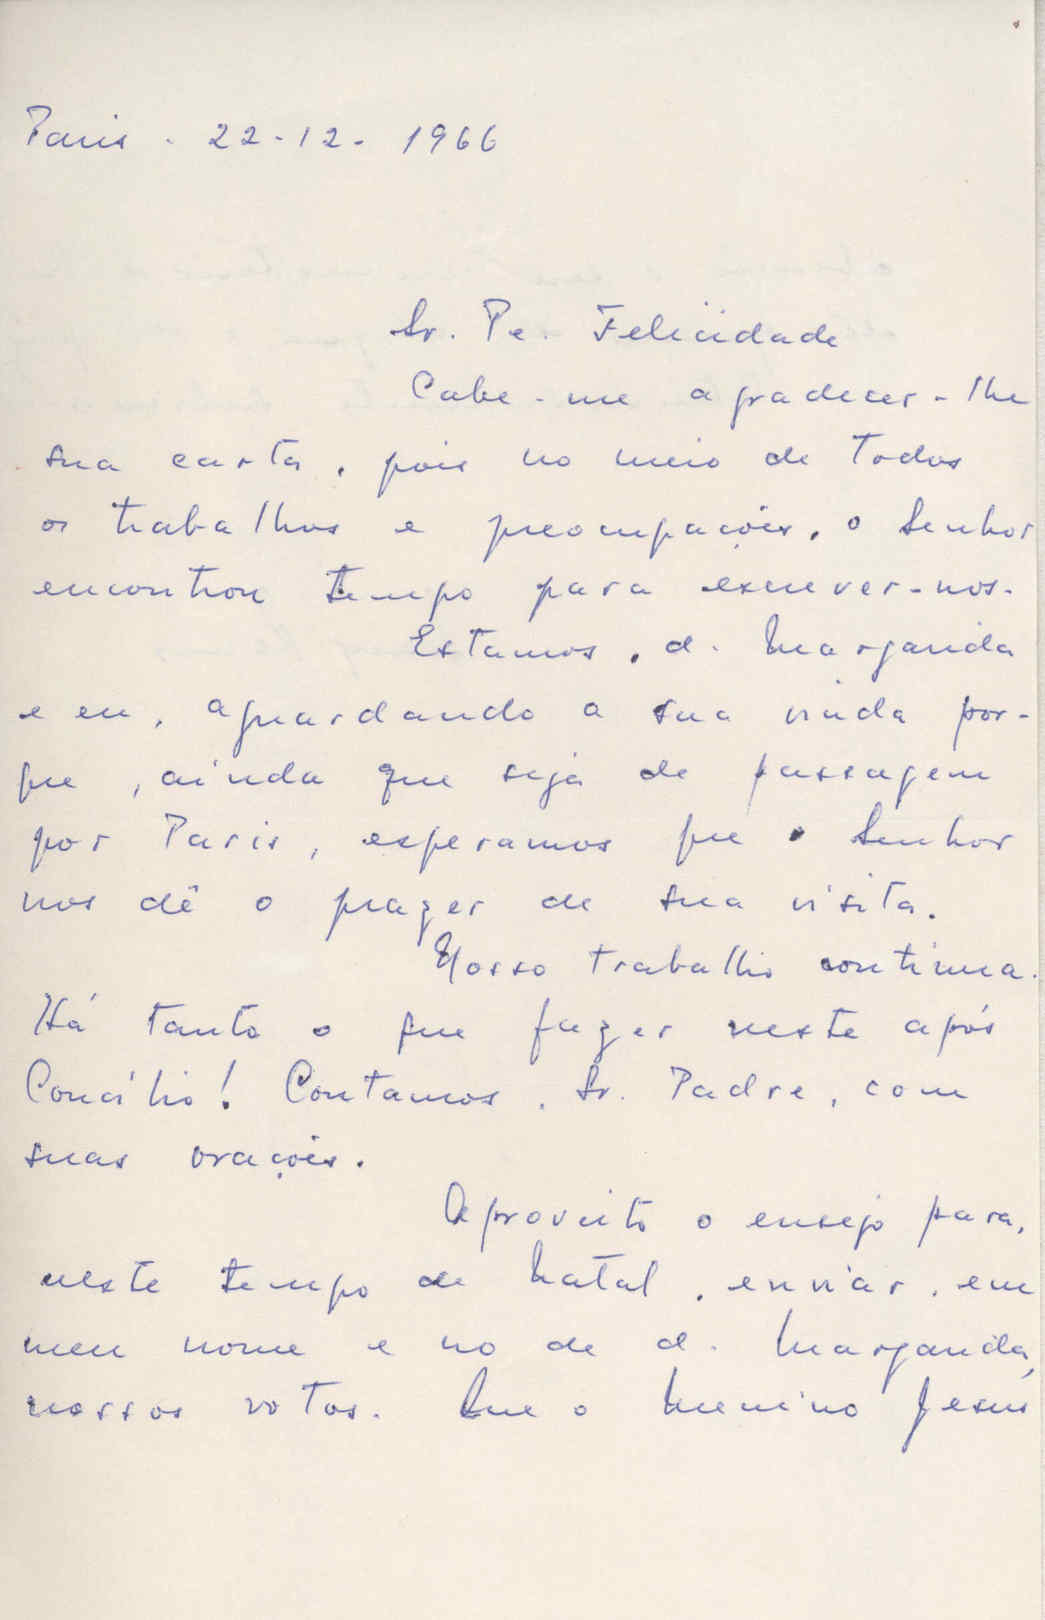 Paris - 22-12-1966
Sr. Pe. Felicidade
Cabe-me agradecer-lhe
sua carta, pois no meio de todos
os trabalhos e preocupações, o Senhor
encontrou tempo para escrever-nos.
Estamos, d. Margarida
e eu, aguardando a sua vinda por-
que, ainda que seja de passagem
por Paris, esperamos que o Senhor
nos dê o prazer de sua visita.
Nosso trabalho continua.
Há tanto o que fazer neste após
Concílio! Contamos, Sr. Padre, com
suas orações.
Aproveito o ensejo para,
neste tempo de Natal, enviar, em
meu nome e no de d. Margarida,
nossos votos. Que o Menino Jesus